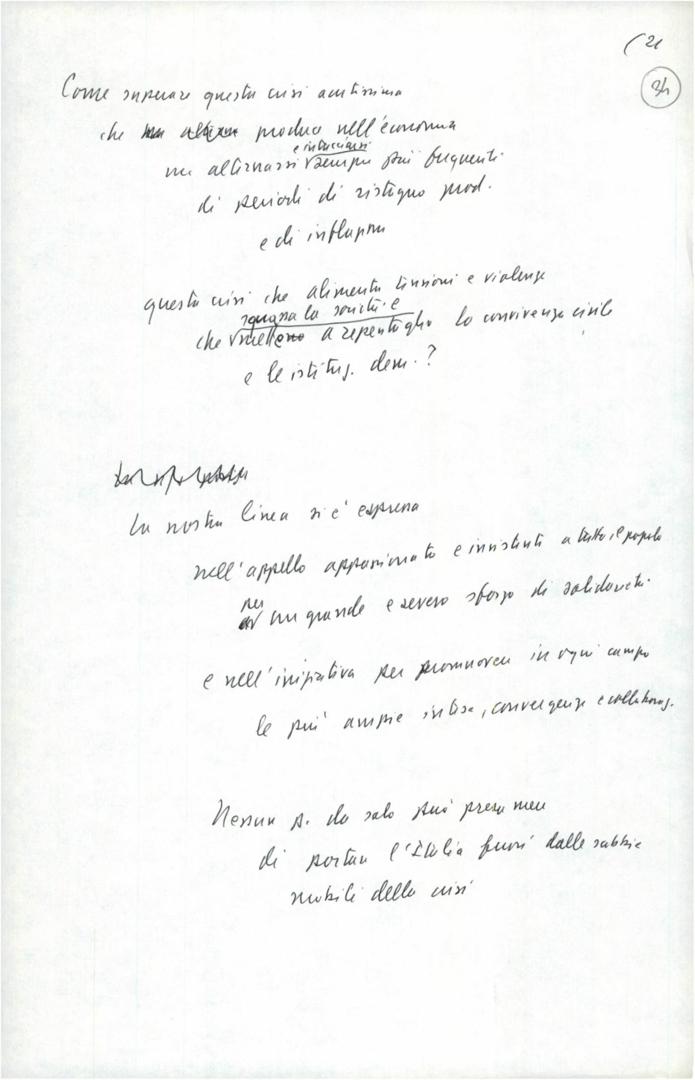 (21
34
Come superare questa crisi acutissima
che produce nell'economia
e intrecciarsi
un alternarsi sempre più frequenti
di periodi di ristagno prod.
e di inflazione
questa crisi che alimenta tensioni e violenze
squassa la società e
che mettono a repentaglio la convivenza civile
e le istituz. dem.?
La nostra linea si è espressa
nell'appello appassionato e insistente a tutto il popolo
per
un grande e severo sforzo di solidarietà
e nell'iniziativa per promuovere in ogni campo
le più ampie intese, convergenze e collaboraz.
Nessun p. da solo può presumere
di portare l'Italia fuori dalle sabbie
mobili della crisi